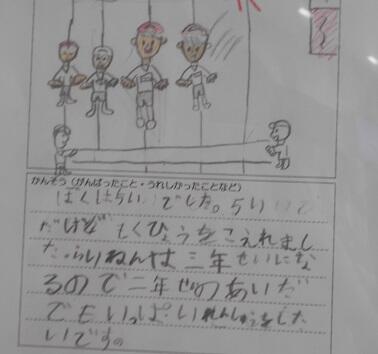 かんそう(がんばったこと・うれしかったことなど)
ぼくは らい でした。らい
だけど もくひょうをこえれまし
た。らいねんは三年せいにな
るので二年せのあいだ
でもいっぱいれんしゅうをした
いです。